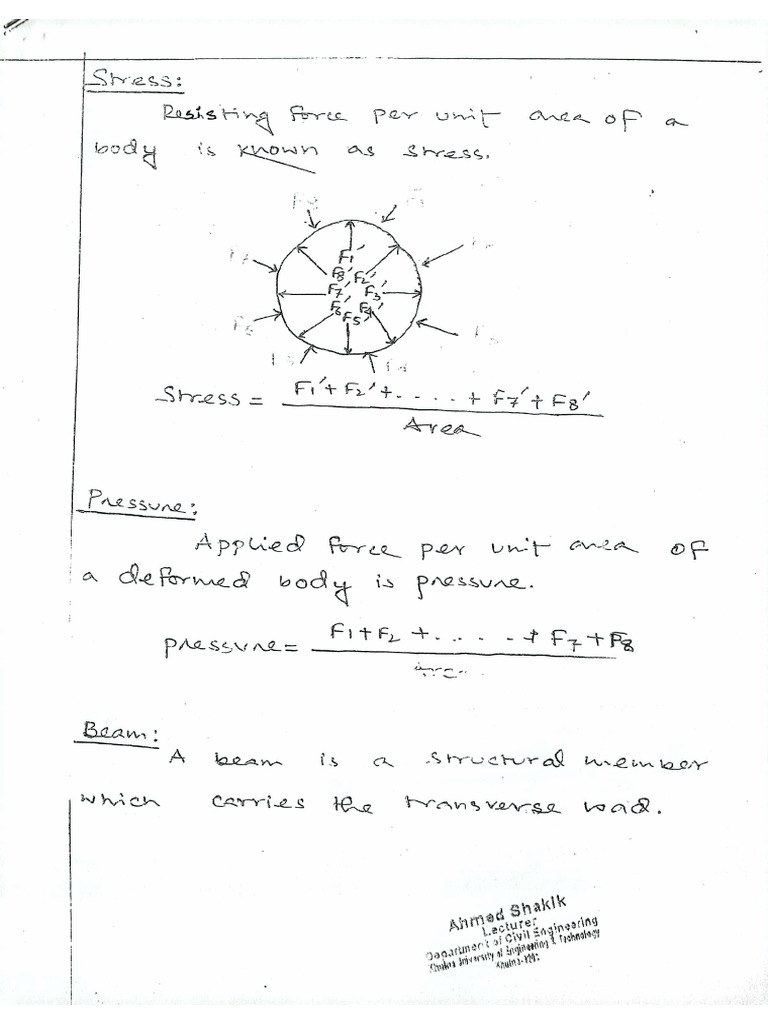 Stress:
Resisting force per unit area of a
body is known as stress.
F8
F7
F6
F5
F4
F1'
F8' F2'
F7' F3'
F6' F4'
F5'
Stress = F1' + F2' + . . . . + F7' + F8'
Area
Pressure:
Applied force per unit area of
a deformed body is pressure.
pressure = F1 + F2 + . . . . + F7 + F8
Beam:
A beam is a structural member
which carries the transverse load.
Ahmed Shakik
Lecturer
Department of Civil Engineering
Khulna University of Engineering & Technology